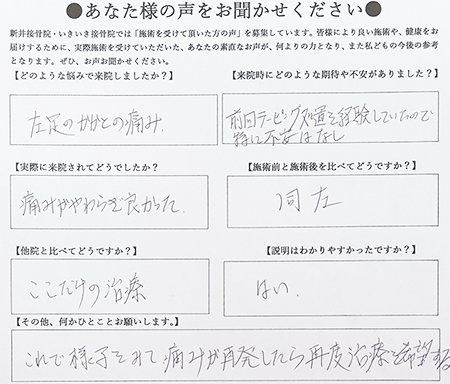 ●あなた様の声をお聞かせください●
新井接骨院・いきいき接骨院では「施術を受けて頂いた方の声」を募集しています。皆様により良い施術や、健康をお
届けするために、実際施術を受けていただいた、あなたの素直なお声が、何よりの力となり、また私どもの今後の参考
となります。ぜひ、お声お聞かせください。
【どのような悩みで来院しましたか?】
左足のかかとの痛み.
【来院時にどのような期待や不安がありました?】
前回テーピング処置を経験していたので
特に不安はなし
【実際に来院されてどうでしたか?
痛みがやわらぎ良かった.
【施術前と施術後を比べてどうですか?】
同左
【他院と比べてどうですか?】
ここだけの治療
【説明はわかりやすかったですか?】
はい.
【その他、何かひとことお願いします。】
これで様子をみて痛みが再発したら再度治療を希望する